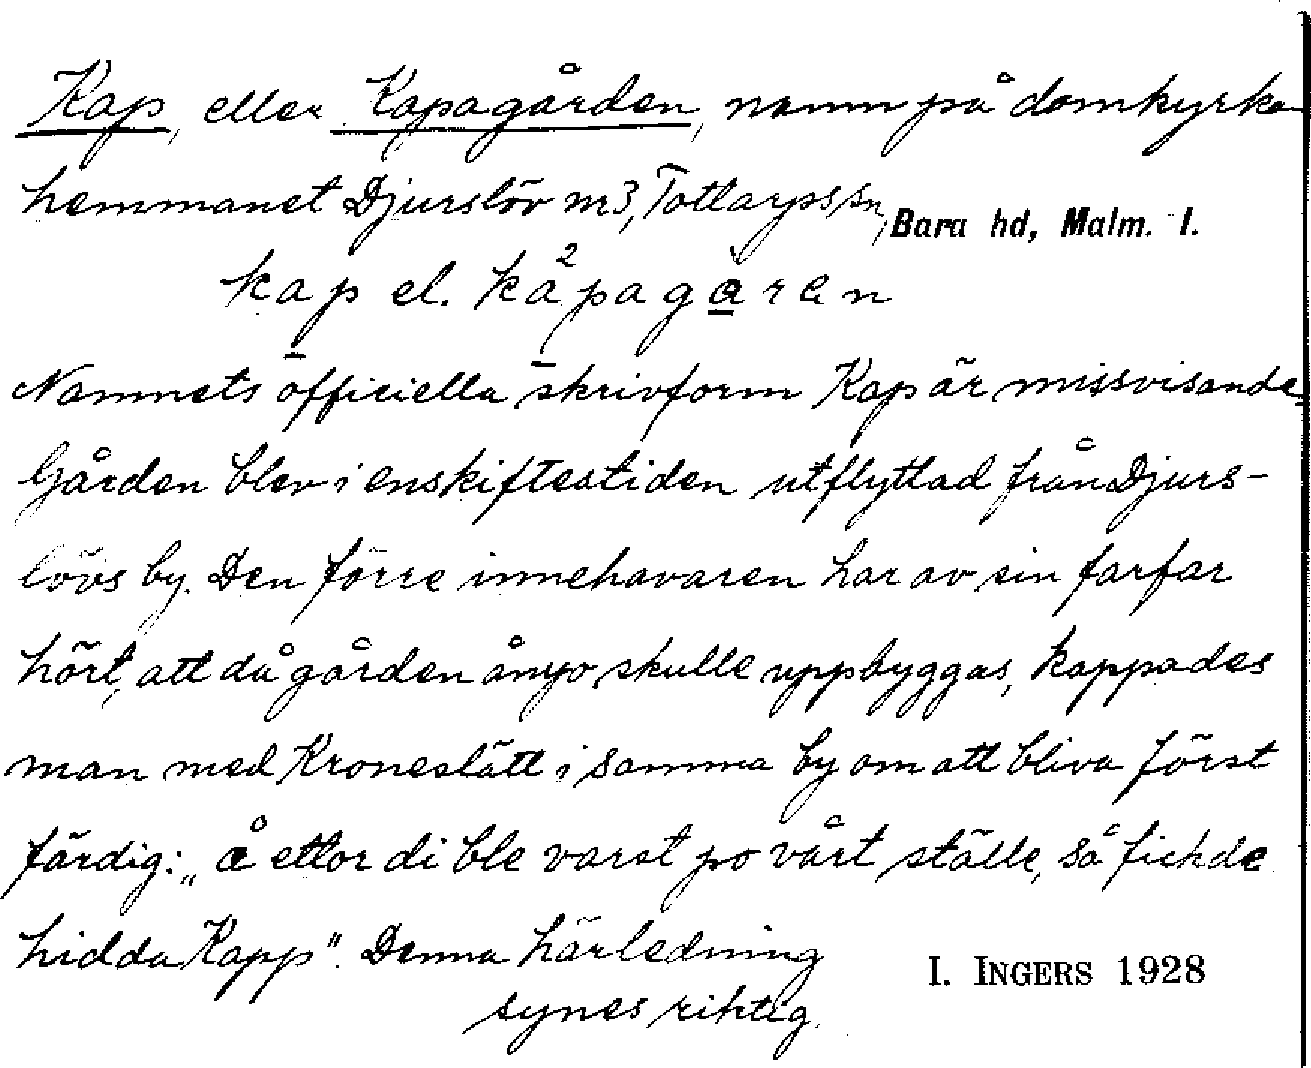 Kap, eller Kapagården, namn på domkyrko
hemmanet Djurslöv nr 3, Tottarps sn, Bara hd, Malm. l.
kap el. kåpagåren
Namnets officiella skrivform Kap är missvisande.
Gården blev i enskiftestiden utflyttad från Djurs-
lövs by. Den förre innehavaren har av sin farfar
hört, att då gården ånyo skulle uppbyggas, kappades
man med Kroneslätt i samma by om att bliva först
färdig: „å ettor di ble varst po vårt ställe, så fick de
hidda Kapp". Denna härledning
synes riktig.
I. INGERS 1928